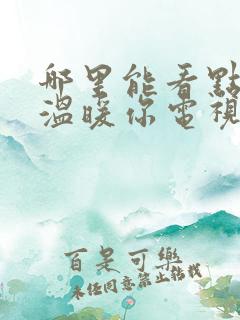 哪里能看點
溫暖你電視
百是可樂
未经同意禁止转载